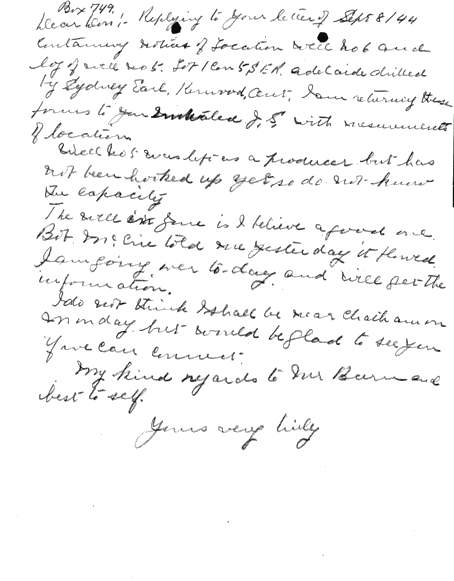 Box 749.
Dear Don:- Replying to your letter of Sept 8/44
containing notices of Location well No 6 and
log of well No 5. Lot 1 Con 5 S.E.R. Adelaide drilled
by Sydney Earl, Kerwood, Ont, I am returning these
forms to you initialed J.S. with mesurments
of location
Well No 5 was left as a producer but has
not been hooked up yet so do not know
the capacity
The well in June is I believe a good one
Bob told me yesterday it flowed
I am going over to-day and will get the
information.
I do not think I shall be near Chatham on
Monday but would be glad to see you
if we can connect.
My kind regards to Mr and
best to self.
Yours very truly